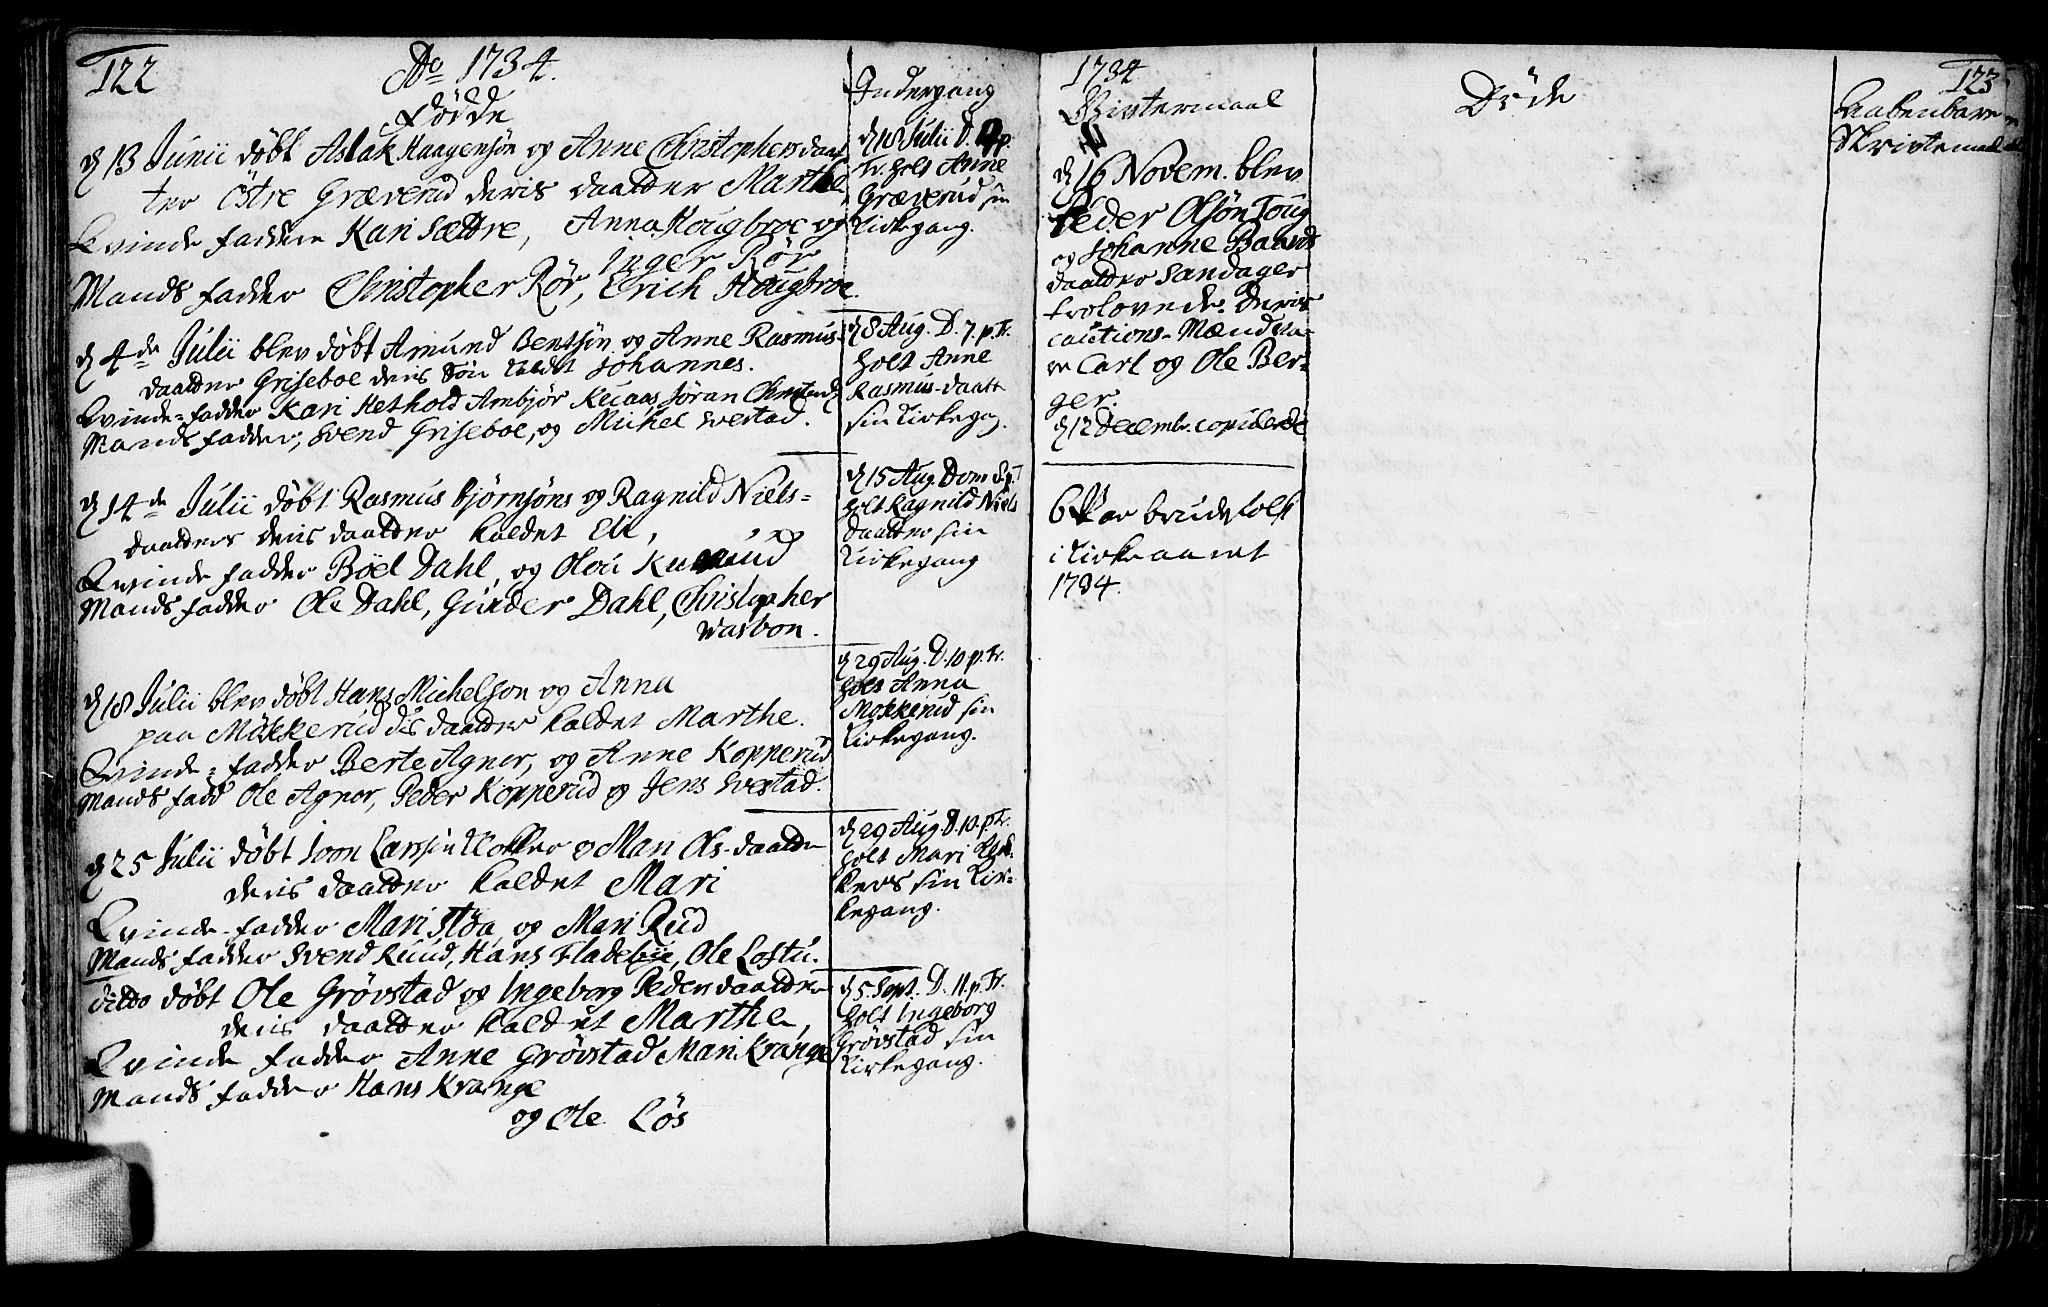 122
Ao 1734.
Fødde
d 13 Junii døbt Aslak Haagensøn og Anne Christophersdaat
ter Östre Græverud deris daatter Marthe
Kvinde faddere Kari Sættre, Anna Hougbroe og
Inger Rör
Mands fadder Christopher Rör, Erich Hougbroe.
d 4de Julii blev døbt Amund Bentsøn og Anne Rasmus-
daatter Griseboe deris Søn kaldet Johannes.
Kvinde-fadder Kari Hethold Arnbjør Jøran
Mands fadder, Svend Griseboe, og Mickel Svestad.
d 14de Julii døbt Rasmus Bjørnsøns og Ragnild Niels-
daatters deris daatter kaldet Eli,
Kvinde fadder Böel Dahl, og Olou
Mands fadder Ole Dahl, Gunder Dahl, Christopher
wasbon.
d 18 Julii blev døbt Hans Michelson og Anna
paa Mökkerud dis daatter kaldet Marthe.
Kvinde-fadder Berte Agnor, og Anne Kopperud
Mands fadd Ole Agnor, Peder Kopperud og Jens Svestad.
d 25 Julii døbt Joon Larsøn Klokker og Mari Ols-daatter
deris daatter kaldet Mari
Kvinde-fadder Mari Stöa og Mari Rud
Mands fadder Svend Ruud, Hans Fladebye, Ole Lostu.
ditto døbt Ole Grövstad og Ingeborg Pedersdaatter
deris daatter kaldet Marthe,
Kvinde fadder Anne Grövstad Mari Krange
Mands fadder Hans Krange
og Ole Lös
Indergang
d 18 Julii D. p.
Tr. holt Anne
Græverud sin
Kirkegang.
d 8 Aug. D. 7. p. Tr.
holt Anne
Rasmus-daatt
sin Kirkegag.
d 15 Aug. Dom 8 p T
holt Ragnild Niels
daatter sin
Kirkegang
d 29 Aug. D. 10 p. Tr.
holt Anna
Mokkerud sin
Kirkegang.
d 29 Aug. D. 10. p. Tr.
holt Mari Klok-
kers sin Kir-
kegang.
d 5. Sept. D. 11. p. Tr.
holt Ingeborg
Grövstad sin
Kirkegang.
1734
Givtermaal
d 16 Novem. blev
Peder Olsøn Toug
og Johanne Baards
daatter Sandager
trolovede. Deris
cautions-Mænd va-
re Carl og Ole Ber-
ger.
d 12 Decembr. copulerede
6 Par brudefolk
i Kirke aaret
1734.
Døde
123
Aabenbare
Skriftemaal